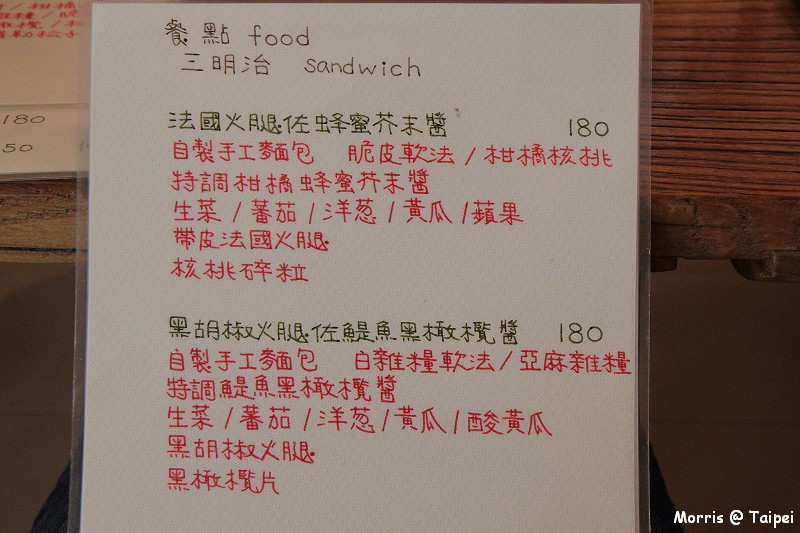 餐點 food
三明治 sandwich
法國火腿佐蜂蜜芥末醬 180
自製手工麵包 脆皮軟法/柑橘核桃
特調柑橘蜂蜜芥末醬
生菜/蕃茄/洋蔥/黃瓜/蘋果
帶皮法國火腿
核桃碎粒
黑胡椒火腿佐鯷魚黑橄欖醬 180
自製手工麵包 白雜糧軟法/亞麻雜糧
特調鯷魚黑橄欖醬
生菜/蕃茄/洋蔥/黃瓜/酸黃瓜
黑胡椒火腿
黑橄欖片
180
50
Morris @ Taipei